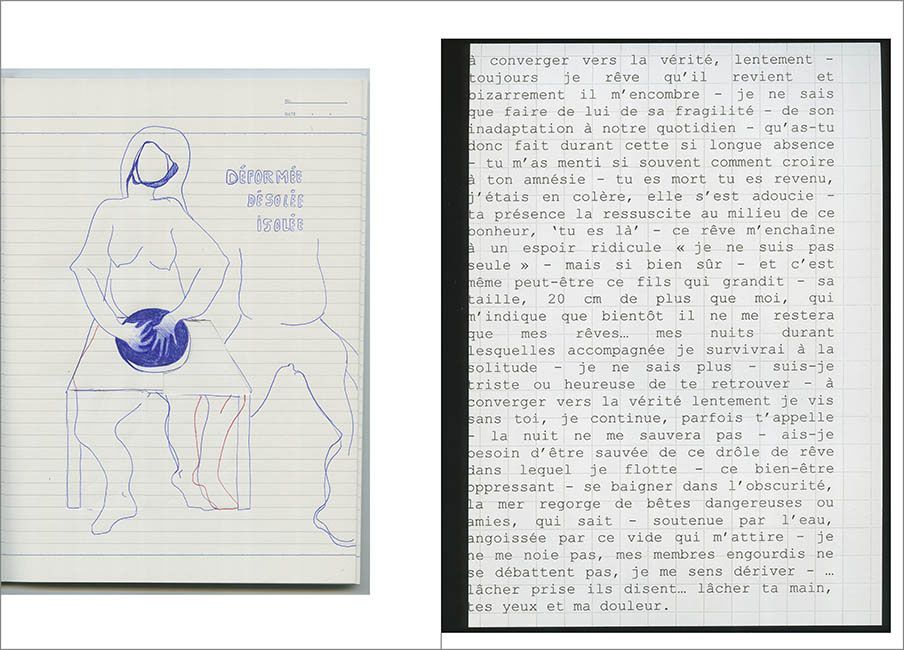 No.
DATE
DÉFORMÉE
DÉSOLÉE
ISOLÉE
à converger vers la vérité, lentement –
toujours je rêve qu’il revient et
bizarrement il m’encombre – je ne sais
que faire de lui de sa fragilité – de son
inadaptation à notre quotidien – qu’as-tu
donc fait durant cette si longue absence
– tu m’as menti si souvent comment croire
à ton amnésie – tu es mort tu es revenu,
j’étais en colère, elle s’est adoucie –
ta présence la ressuscite au milieu de ce
bonheur, ‘tu es là’ – ce rêve m’enchaîne
à un espoir ridicule « je ne suis pas
seule » – mais si bien sûr – et c’est
même peut-être ce fils qui grandit – sa
taille, 20 cm de plus que moi, qui
m’indique que bientôt il ne me restera
que mes rêves… mes nuits durant
lesquelles accompagnée je survivrai à la
solitude – je ne sais plus – suis-je
triste ou heureuse de te retrouver – à
converger vers la vérité lentement je vis
sans toi, je continue, parfois t’appelle
– la nuit ne me sauvera pas – ais-je
besoin d’être sauvée de ce drôle de rêve
dans lequel je flotte – ce bien-être
oppressant – se baigner dans l’obscurité,
la mer regorge de bêtes dangereuses ou
amies, qui sait – soutenue par l’eau,
angoissée par ce vide qui m’attire – je
ne me noie pas, mes membres engourdis ne
se débattent pas, je me sens dériver – …
lâcher prise ils disent… lâcher ta main,
tes yeux et ma douleur.